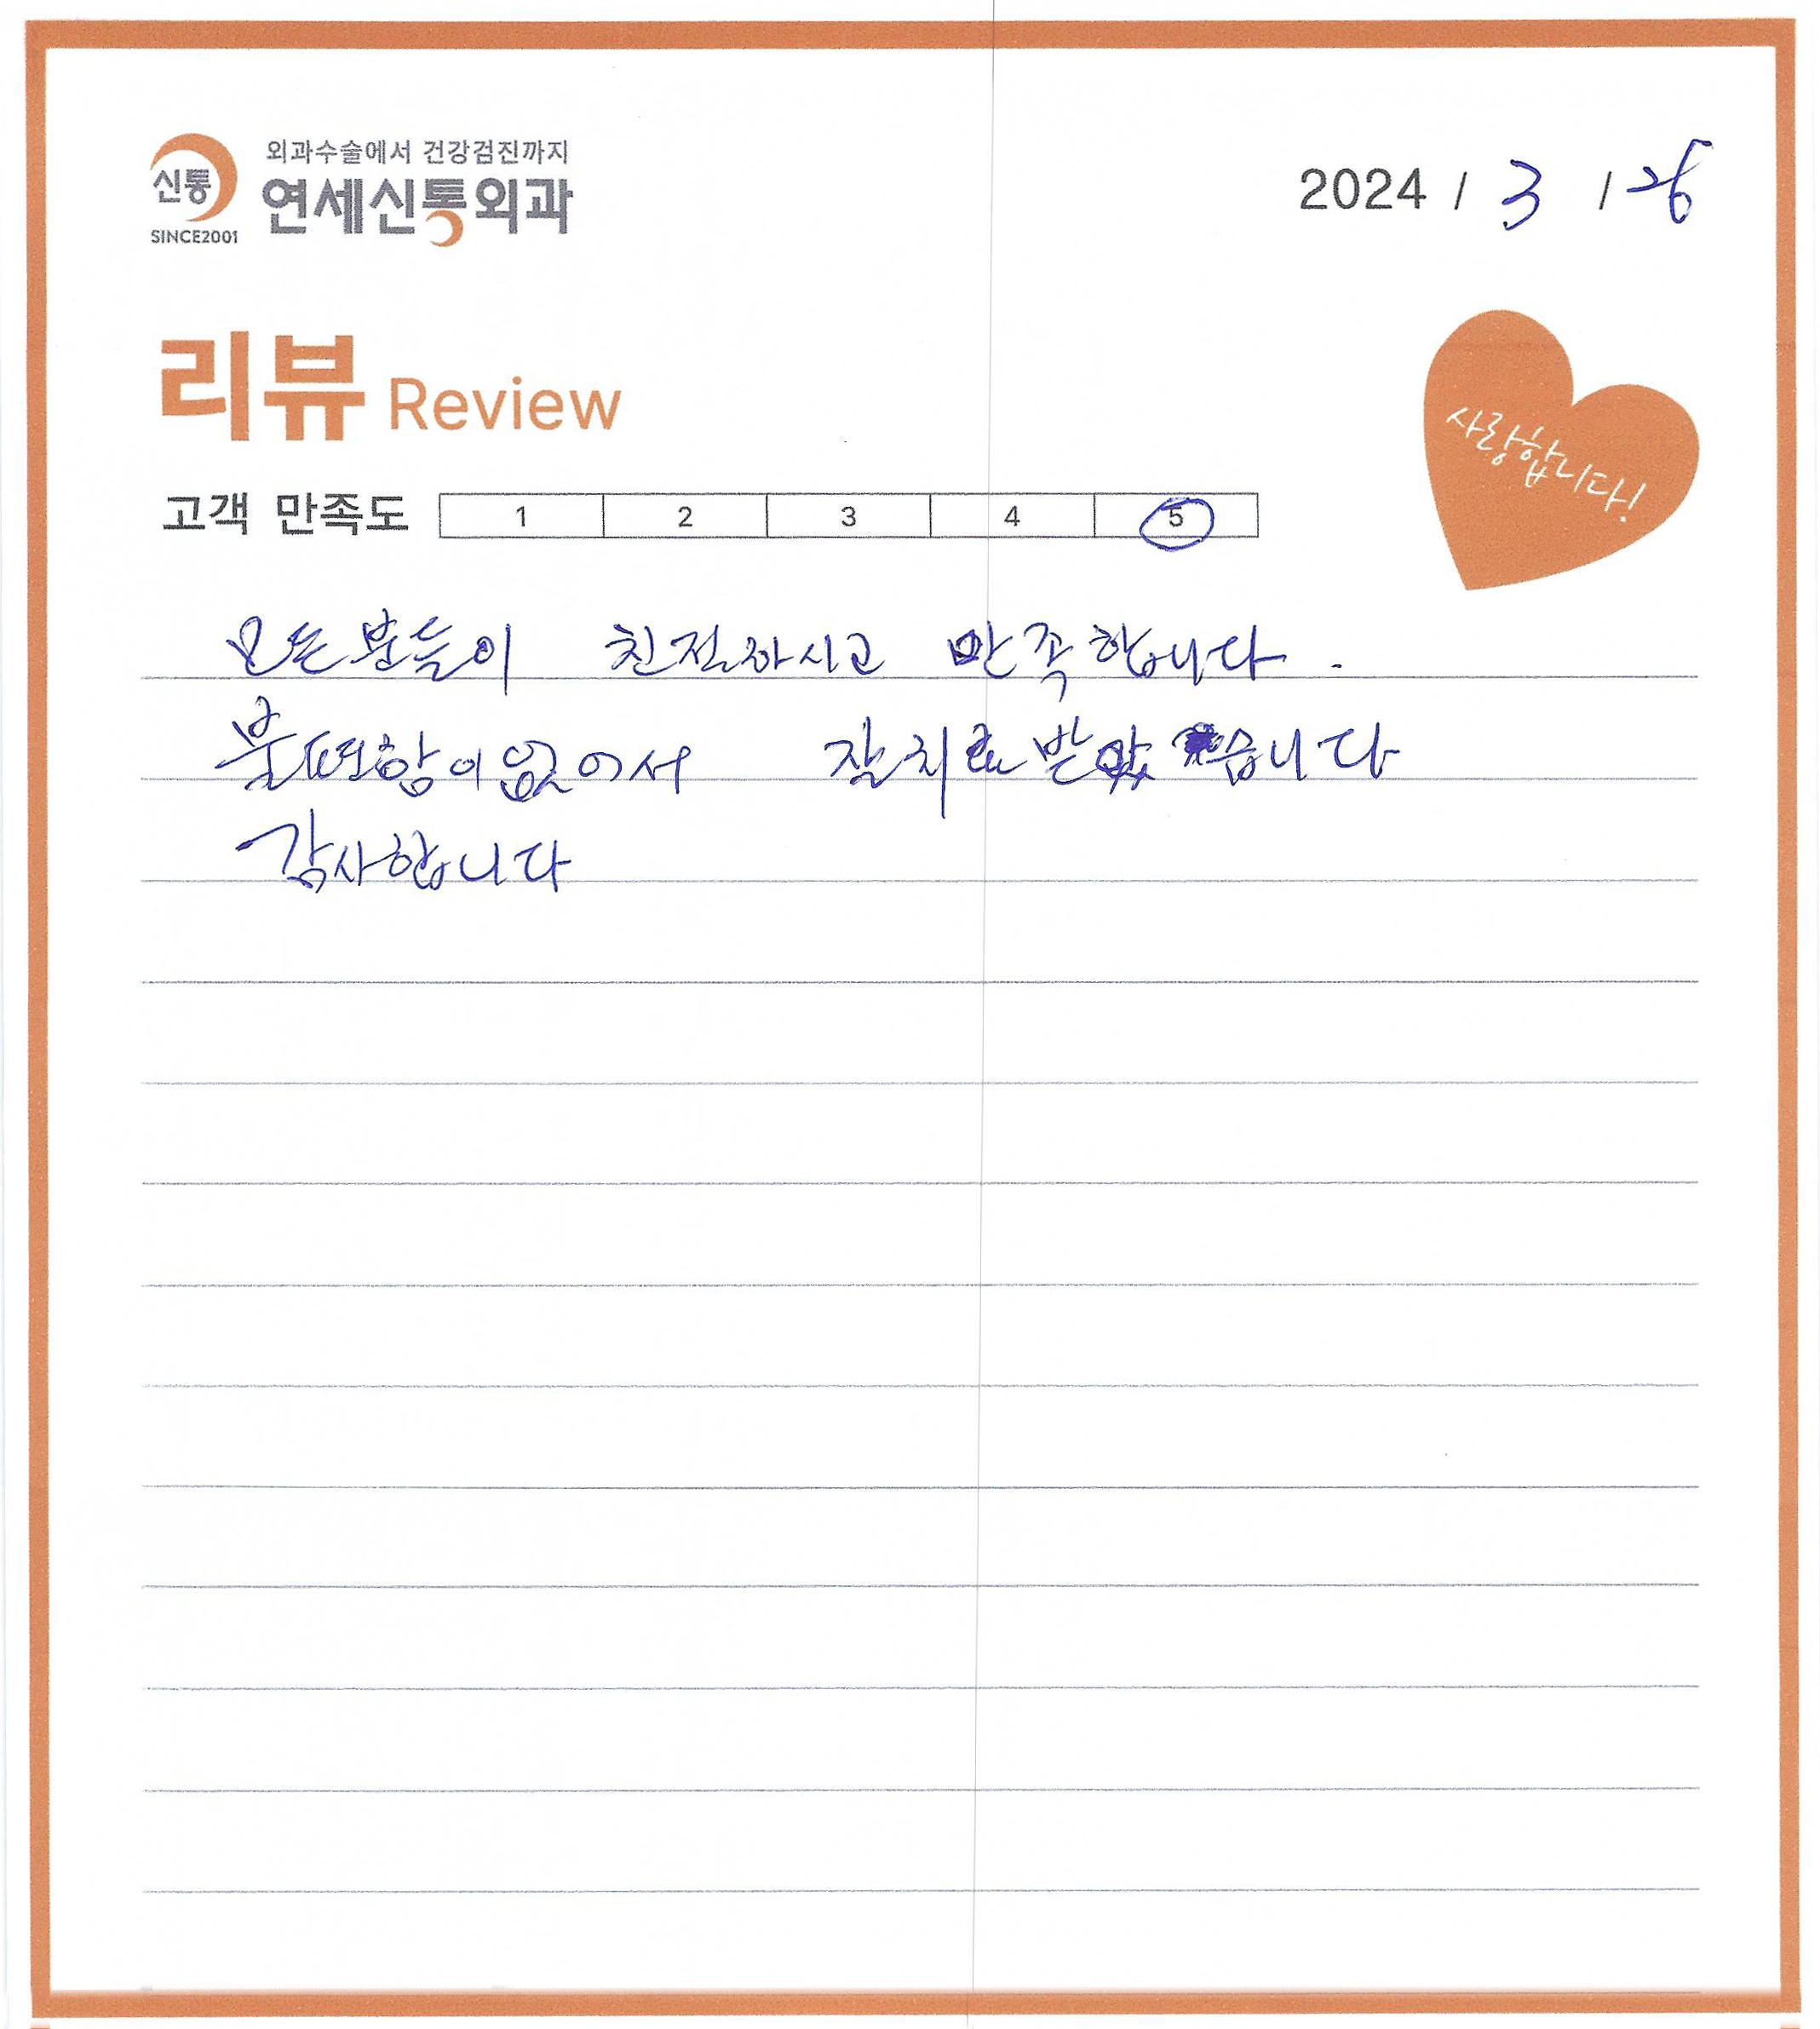 외과수술에서 건강검진까지
신통 연세신통외과
SINCE2001
2024 / 3 / 26
리뷰 Review
사랑합니다!
고객 만족도 1 2 3 4 5
모든분들이 친절하시고 만족합니다.
불편함이없어서 잘치료받았습니다
감사합니다